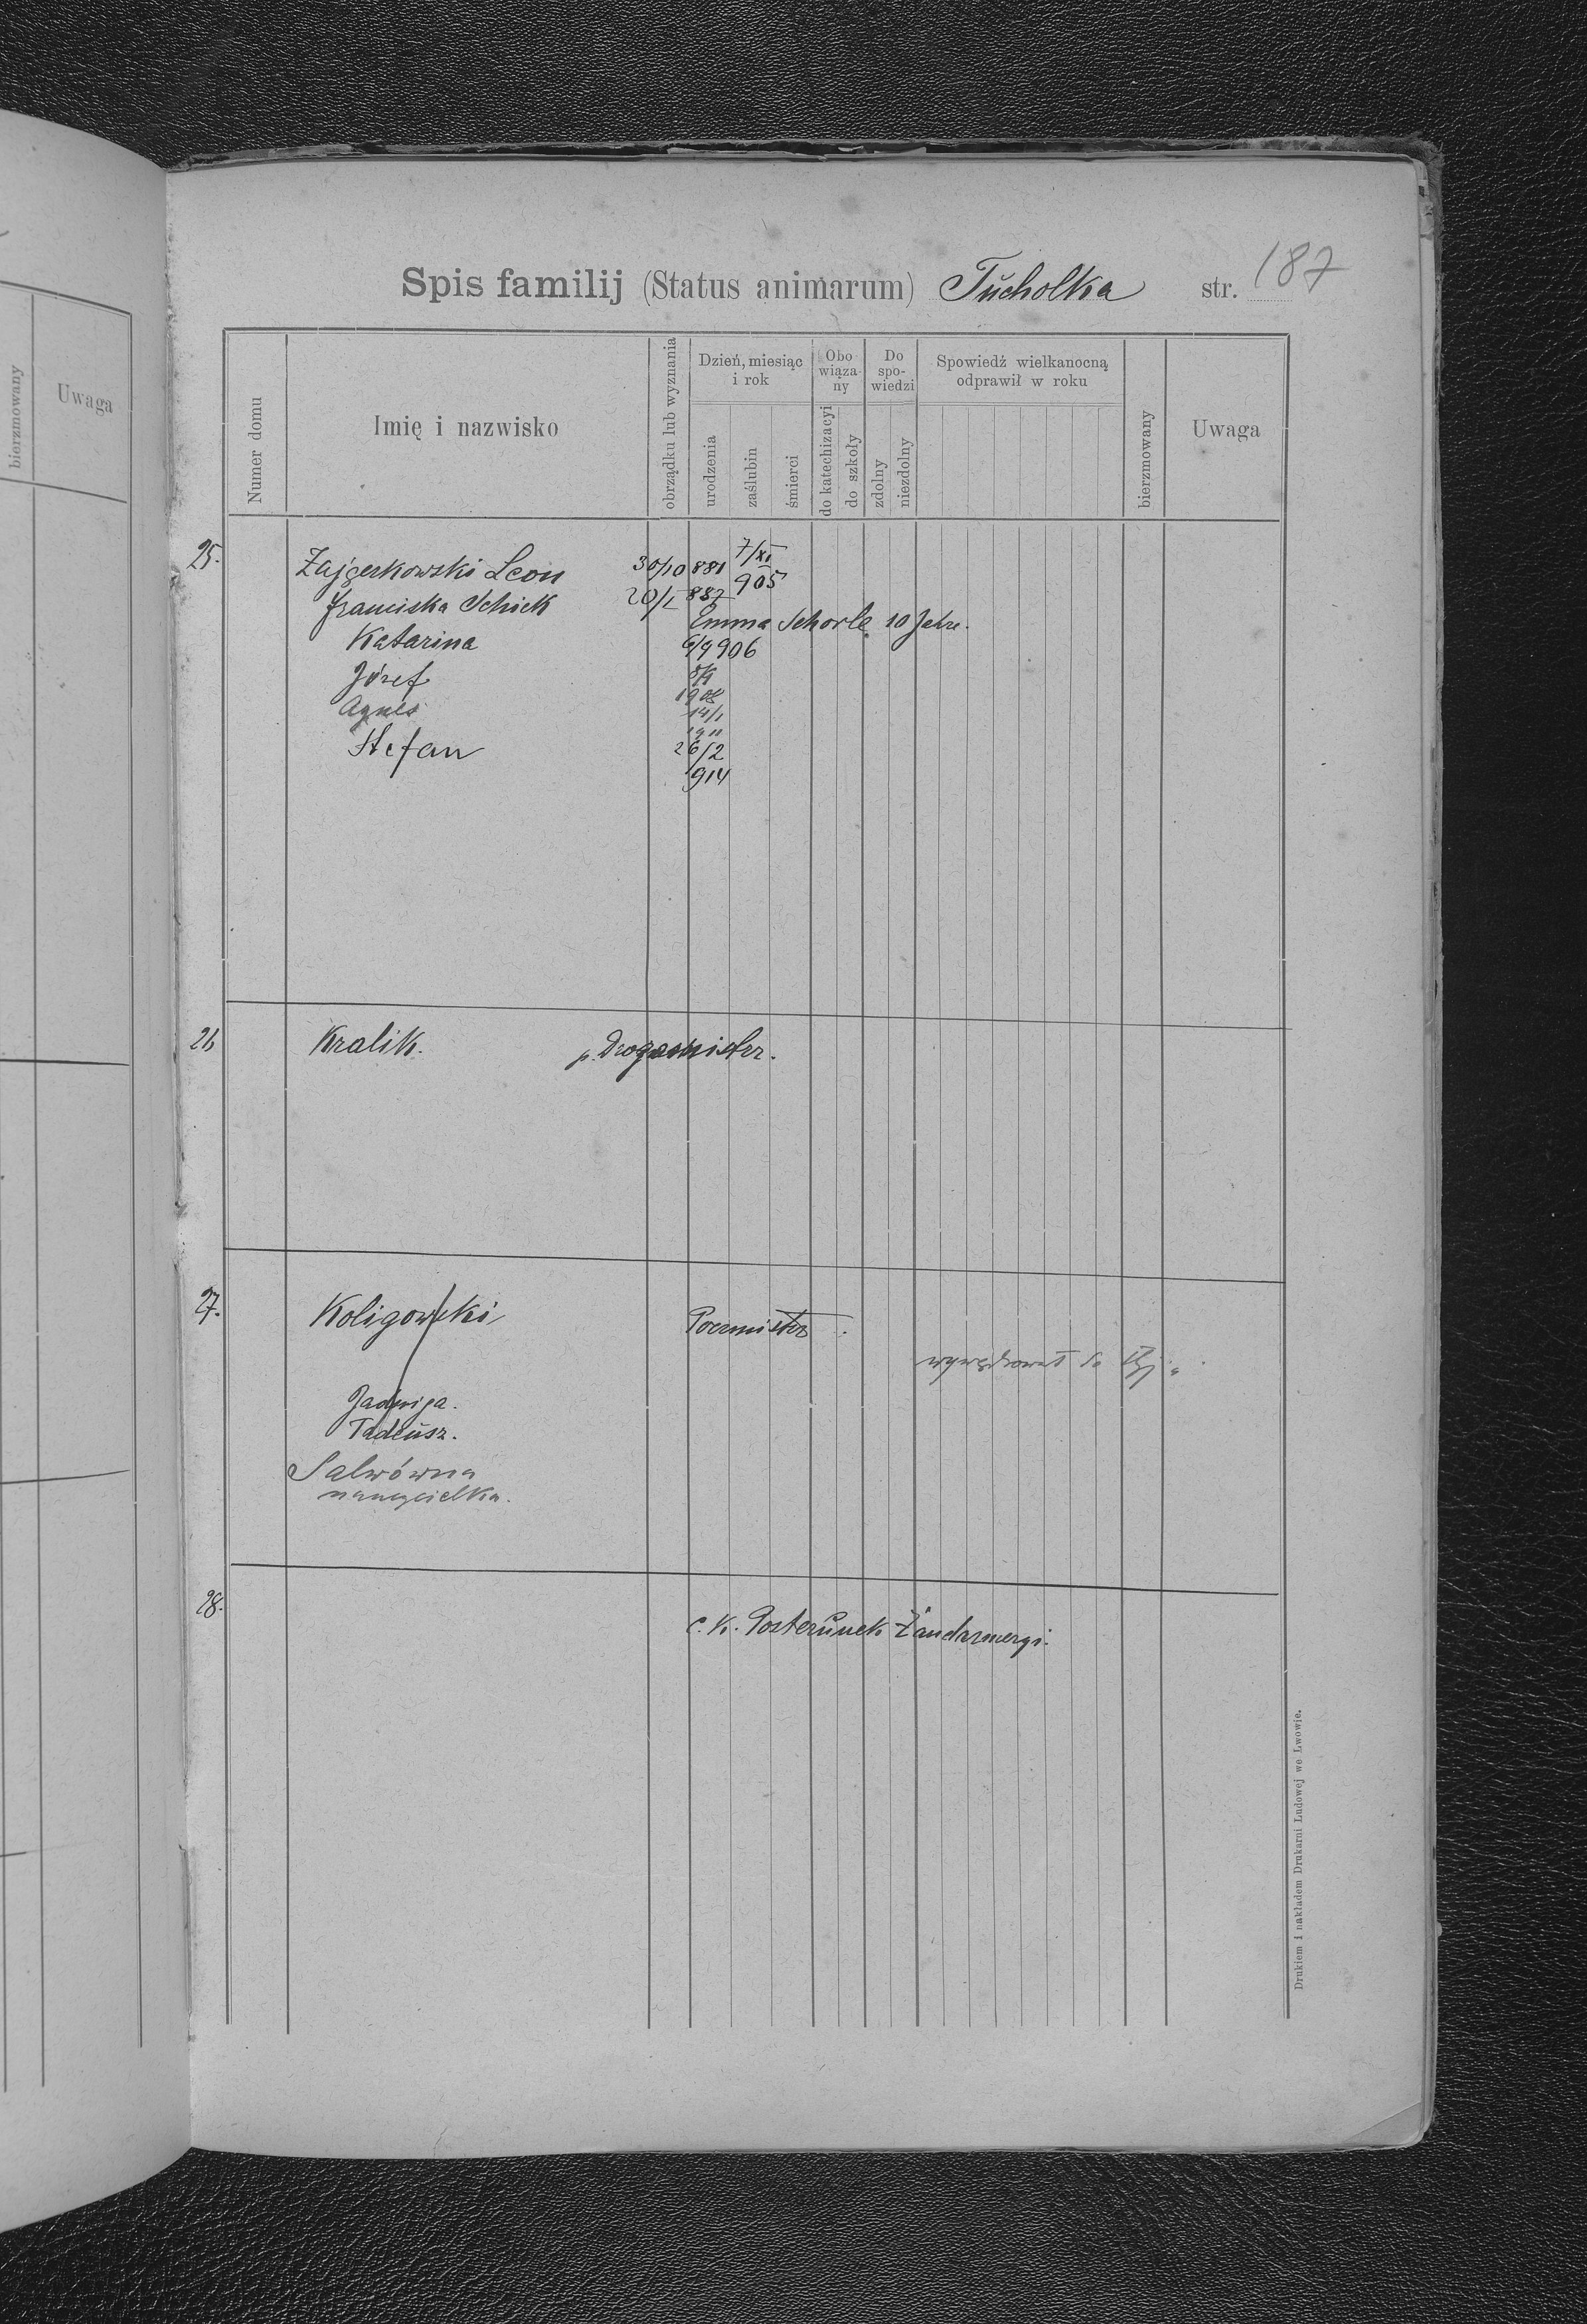 bierzmowany
Uwaga
Spis familij (Status animarum) Tucholka str. 187
Numer domu
Imię i nazwisko
obrządku lub wyznania
Dzień, miesiąc
i rok
urodzenia
zaślubin
śmierci
Obo
wiąza-
ny
do katechizacyi
do szkoły
Do
spo-
wiedzi
zdolny
niezdolny
Spowiedź wielkanocną
odprawił w roku
bierzmowany
Uwaga
25. Zajgerkowski Leon 30/10 881 7/XI
905
Franciska Schick 20/I 887
Emma Schorle 10 Jahre.
Katarina 6/9 906
Józef
1908
Agnes 14/1
1911
Stefan 26/2
914
26 Kralik. p. Drogomister.
27. Koligowski
Jadwiga.
Tadeusz.
Salwówna
nauczycielka.
28.
C. K. Posterunek Żandarmeryi.
Drukiem i nakładem Drukarni Ludowej we Lwowie.